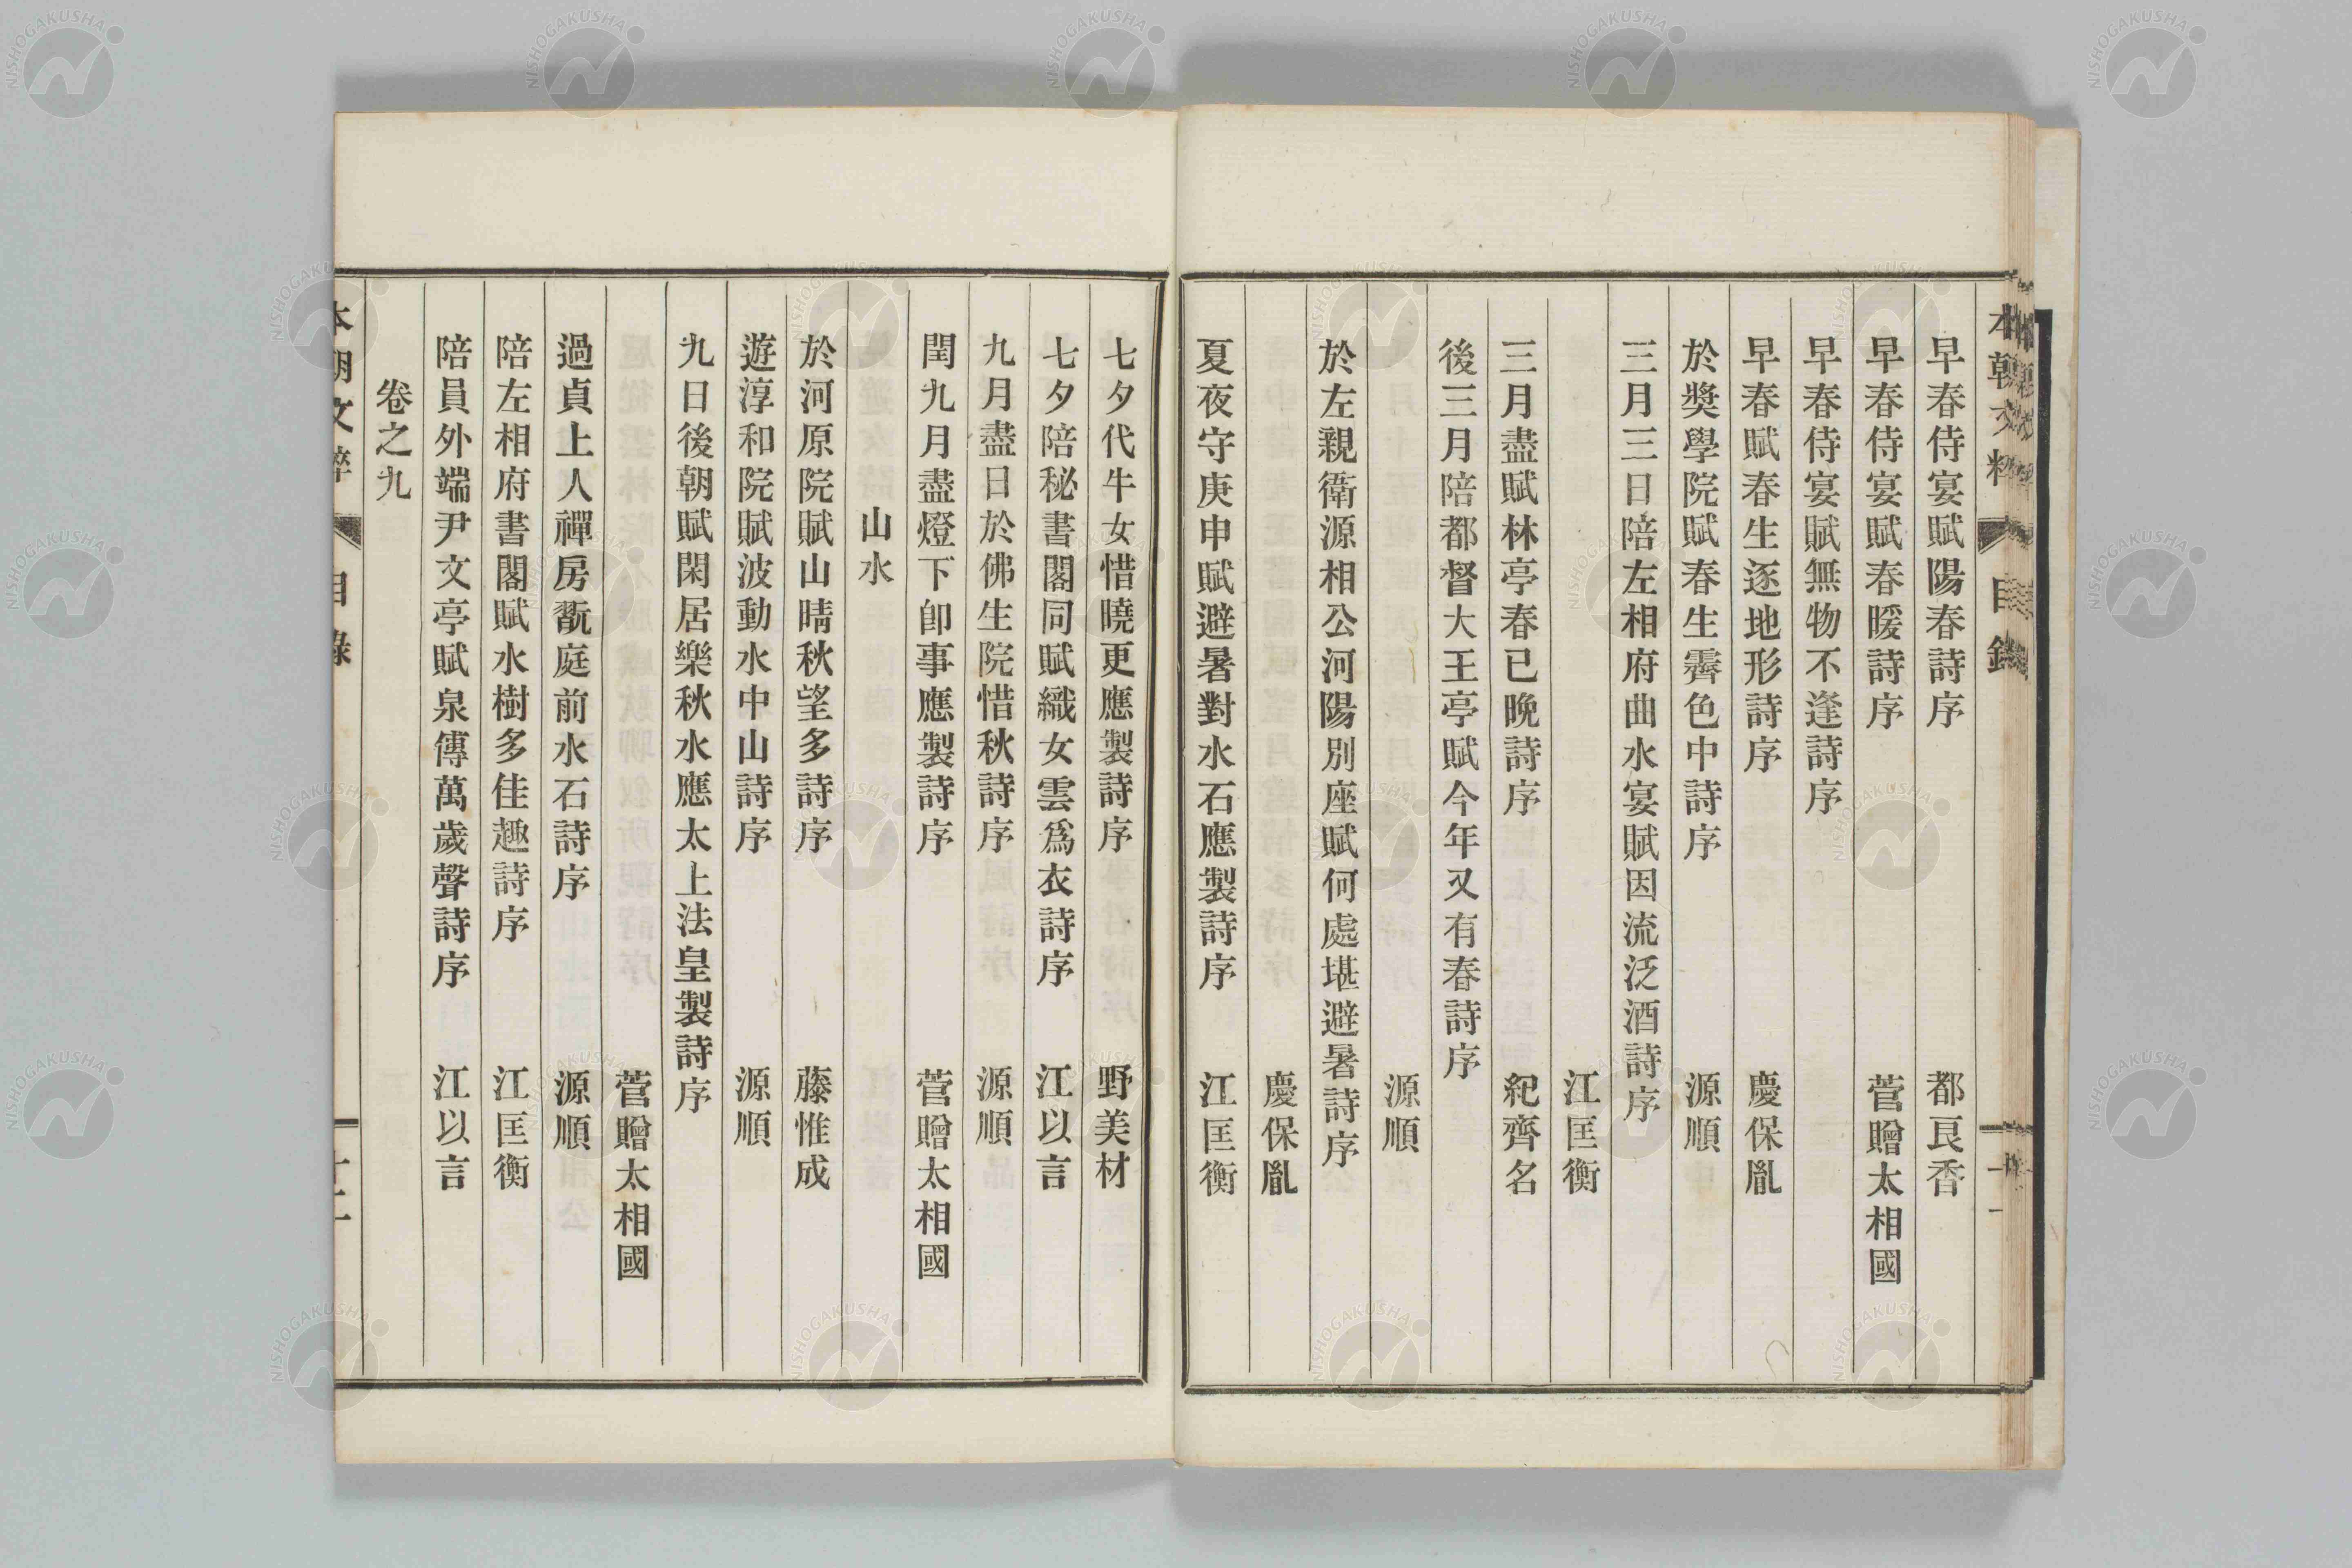 早春侍宴賦陽春詩序 都良香
早春侍宴賦春暖詩序 菅贈太相國
早春侍宴賦無物不逢詩序
早春賦春生逐地形詩序 慶保胤
於奬學院賦春生霽色中詩序 源順
三月三日陪左相府曲水宴賦因流泛酒詩序
江匡衡
三月盡賦林亭春已晩詩序 紀齊名
後三月陪都督大王亭賦今年又有春詩序
源順
於左親衛源相公河陽別座賦何處堪避暑詩序
慶保胤
夏夜守庚申賦避暑對水石應製詩序 江匡衡
七夕代牛女惜曉更應製詩序 野美材
七夕陪秘書閣同賦織女雲爲衣詩序 江以言
九月盡日於佛生院惜秋詩序 源順
閏九月盡燈下卽事應製詩序 菅贈太相國
山水
於河原院賦山晴秋望多詩序 藤惟成
遊淳和院賦波動水中山詩序 源順
九日後朝賦閑居樂秋水應太上法皇製詩序
菅贈太相國
過貞上人禪房翫庭前水石詩序 源順
陪左相府書閣賦水樹多佳趣詩序 江匡衡
陪員外端尹文亭賦泉傳萬歲聲詩序 江以言
卷之九
本朝文粹 目錄
NISHOGAKUSHA